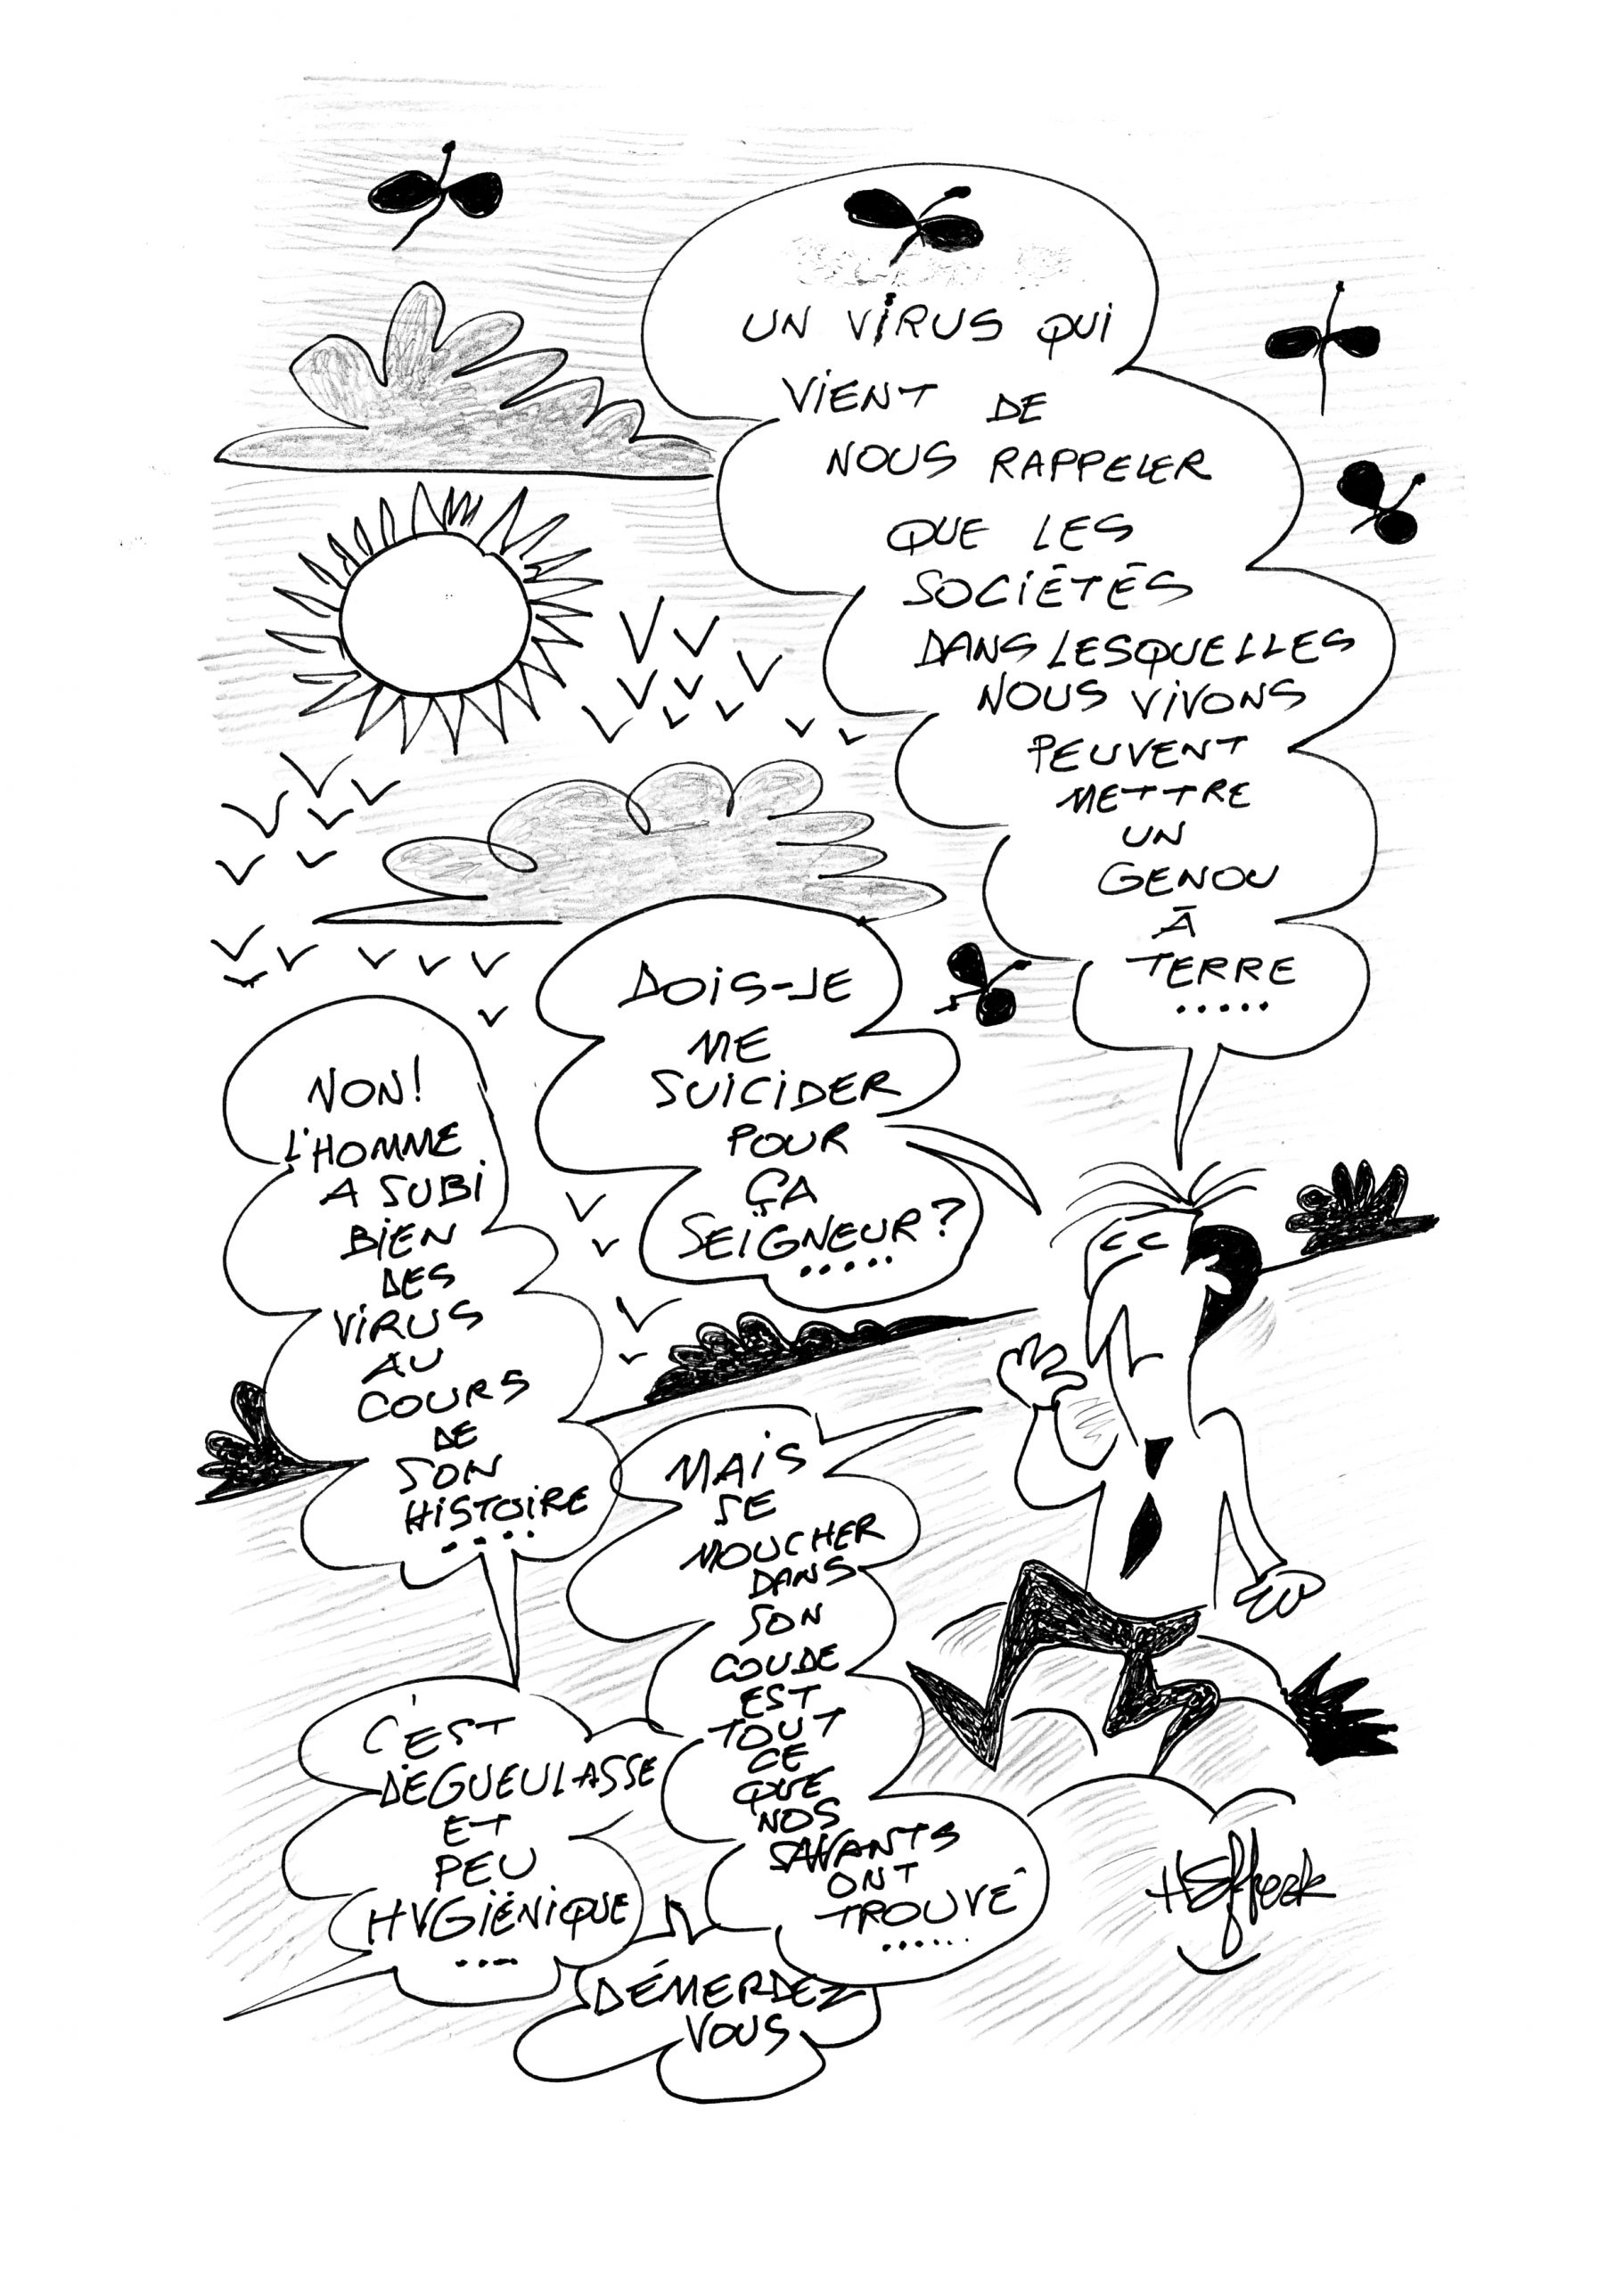 UN VIRUS QUI
VIENT DE
NOUS RAPPELER
QUE LES
SOCIÉTÉS
DANS LESQUELLES
NOUS VIVONS
PEUVENT
METTRE
UN
GENOU
À
TERRE
.....
DOIS-JE
ME
SUICIDER
POUR
ÇA
SEIGNEUR?
.....
NON!
L'HOMME
A SUBI
BIEN
DES
VIRUS
AU
COURS
DE
SON
HISTOIRE
....
MAIS
SE
MOUCHER
DANS
SON
COUDE
EST
TOUT
CE
QUE
NOS
SAVANTS
ONT
TROUVÉ
......
C'EST
DÉGUEULASSE
ET
PEU
HYGIÉNIQUE
....
DÉMERDEZ
VOUS